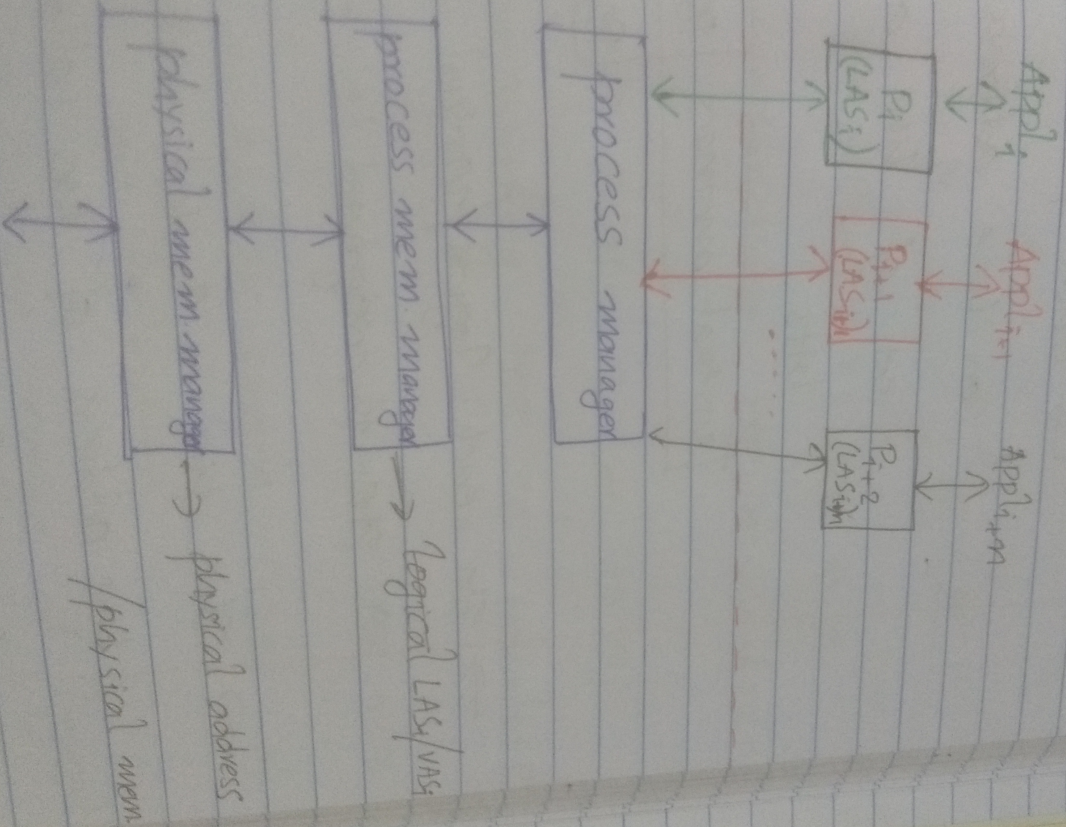 Appl i
Appl i+1
Appl i+n
Pi
(LASi)
Pi+1
(LASi+1)
Pi+2
.....
process manager
process mem. manager → logical LASi/VASi
physical mem. manager → physical address
/physical mem.